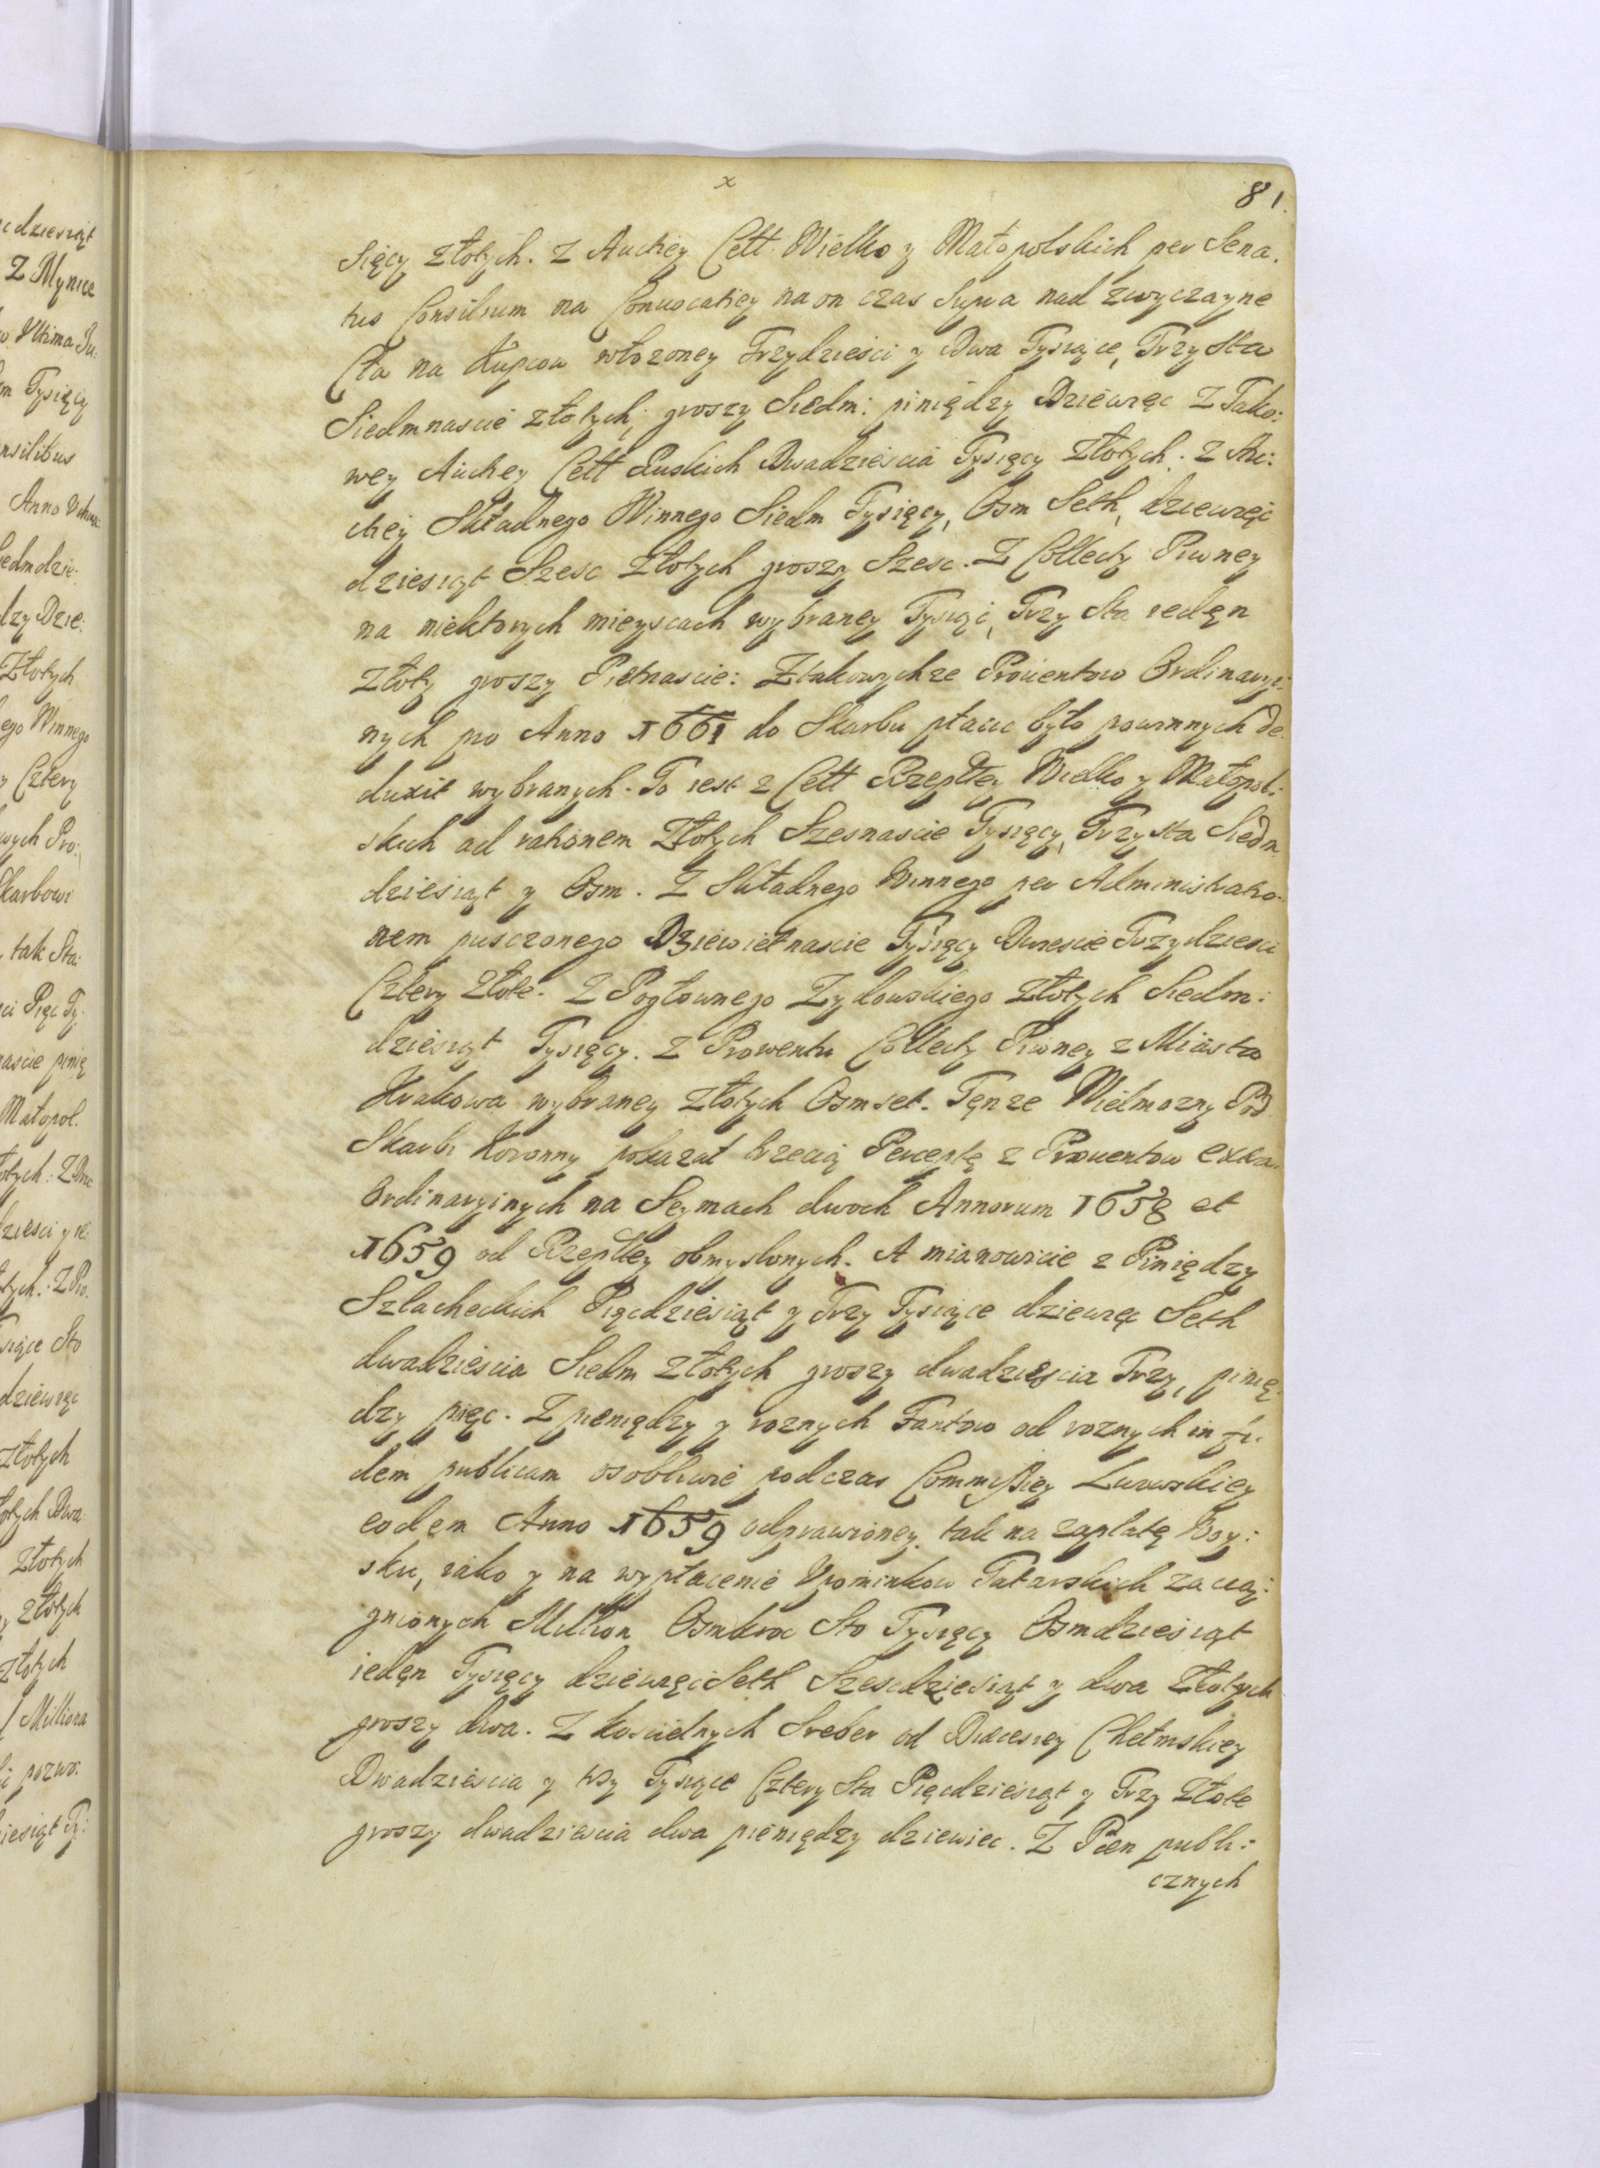 x
81.
c dziesiąt
sięcy złotych. Z Auctiey Cełł Wielko y Małopolskich per Sena.
Z Mynice
tus Consilium na Conuocatiey na on czas supra nad zwyczayne
Vltima Su:
Cła na Kupcow włozoney Trzydziesci y Dwa Tysiące, Trzy sta
m Tysięcy
Siedmnascie złotych, groszy Siedm: piniędzy Dziewięc Z Tako:
nsilibus
wey Auctiey Cełł Ruskich Dwadziescia Tysięcy Złotych. Z Au:
Anno
ctiey Składnego Winnego Siedm Tysięcy, Osm Seth, dziewięc
edmdzie:
dziesiąt Szesc Złotych groszy Szesc. Z Collecty Piwney
dzy Dzie:
na niektorych mieyscach wybraney Tysiąc, Trzy Sta ieden
Złotych
złoty groszy Pietnascie: Ztakowychze Prouentow Ordinaryi:
ego Winnego
nych pro Anno 1661 do Skarbu płacic było powinnych de:
y Cztery
duxit wybranych. To iest z Cełł Rzeptey Wielko y Małopol:
wych Pro:
skich ad rationem Złotych Szesnascie Tysięcy, Trzy sta Siedm
Skarbowi
dziesiąt y Osm. Z Składnego Winnego per Administratio-
tak Sta:
nem pusczonego Dziewietnascie Tysięcy Dwiescie Trzydziesci
ci Pięc Ty:
Cztery Złote. Z Pogłownego Zydowskiego złotych Siedm:
nascie pinię
dziesiąt Tysięcy. Z Prowentu Collecty Piwney z Miasta
Małopol.
Krakowa wybraney złotych Osmset. Tęnze Wielmozny Pod
otych: Z
Skarbi Koronny pokazał trzecią Perceptę z Prouentow extra
dziesci y ie:
Ordinaryinych na Seymach dwoch Annorum 1658 et
otych: Z Pro.
1659 od Rzeptey obmyslonych. A mianowicie z Piniędzy
siące Sto
Szlacheckich Pięcdziesiąt y Trzy Tysiące dziewięc Seth
dziewięc
dwadziescia Siedm złotych groszy dwadziescia Trzy, pinię:
złotych
dzy pięc. Z pieniędzy y roznych Fantow od roznych in fi:
otych Dwa
dem publicam osobliwie podczas Commissiey Lwowskiey
złotych
eodem Anno 1659 odprawioney. tak na zapłatę Woy:
złotych
sku, iako y na wypłacenie Vpominkow Tatarskich zaciąg:
złotych
gnionych Million Osmkroc Sto Tysięcy Osmdziesiąt
Milliona
ieden Tysięcy dziewięcSeth Szescdziesiąt y dwa Złotych
groszy dwa. Z koscielnych Sreber od Diecesiey Chełmskiey
pozwo:
Dwadziescia y trzy Tysiące Cztery Sta Pięcdziesiąt y Trzy Złote
iesiąt Ty:
groszy dwadziescia dwa pieniędzy dziewiec. Z Pien publi:
cznych